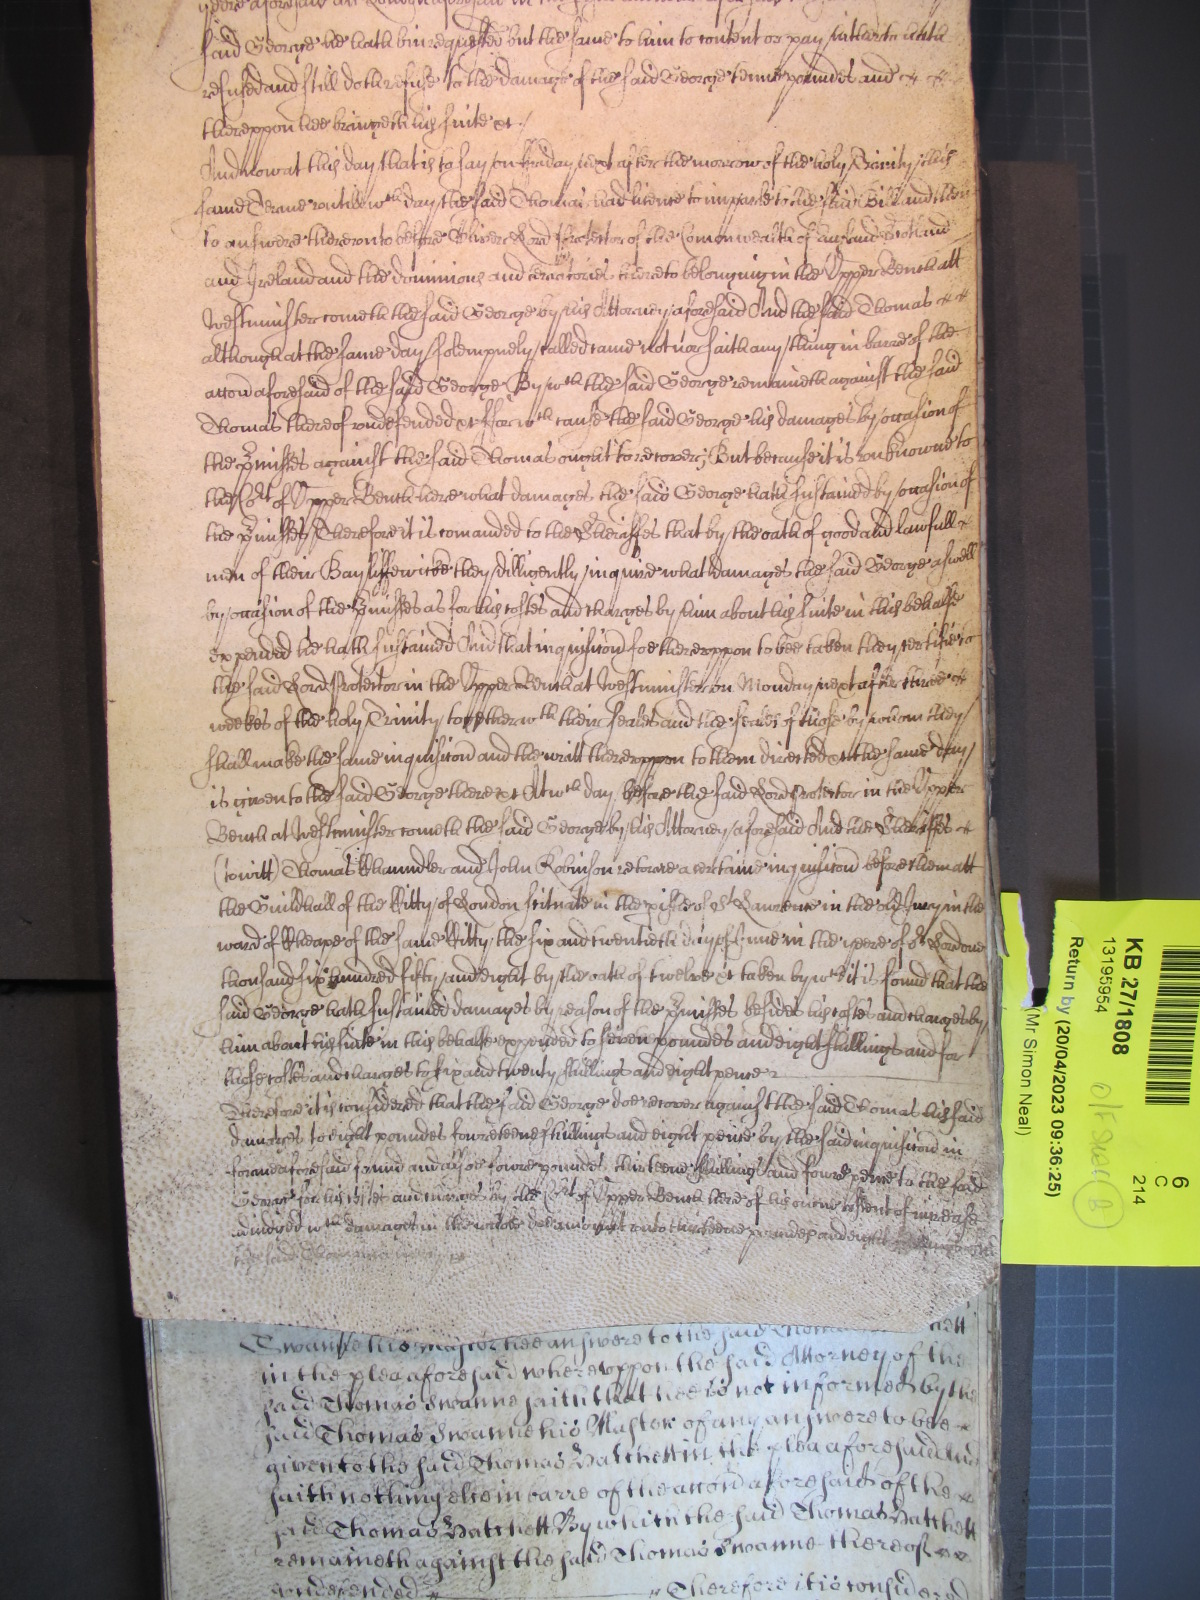 said George he hath bin requested but the same to him to content or pay hitherto hath
refused and still doth refuse To the damage of the said George tenne poundes and
thereuppon hee bringeth his suite &c /
And now at this day that is to say on friday next after the morrow of the holy Trinity this
same Terme untill wth day the said Thomas had licence to imparle to the said Bill and then
to answere thereunto before Oliver Lord Protector of the Comonwealth of England Scotland
and Ireland and the dominions and terrotories thereto belonging in the Upper Bench att
Westminster cometh the said George by his Attorney aforesaid And the said Thomas
although at the same day solempnely called came not nor saith any thing in barre of the
accon aforesaid of the said George By wch the said George remaineth against the said
Thomas thereof undefended &c ffor wch cause the said George his damages by occasion of
the pmisses against the said Thomas ought to recover; But because it is unknowne to
the Cot of Upper Bench here what damages the said George hath sustained by occasion of
the pmisses Therefore it is comanded to the Sheriffes that by the oath of good and lawfull
men of their Bayliffewicke they dilligently inquire what damages the said George aswell
by occasion of the pmisses as for his costes and charges by him about his suite in this behalfe
expended he hath sustained And that inquisicon soe thereuppon to bee taken they certifie to
the said Lord Protector in the Upper Bench at Westminster on Monday next after three
weekes of the holy Trinity together wth their seales and the seales of those by whom they
shall make the same inquisicon and the writt thereuppon to them directed &c the same day
is given to the said George there &c At wch day before the said Lord Protector in the Upper
Bench at Westminster cometh the said George by his Attorney aforesaid And the Sheriffes
(to witt) Thomas Chaundler and John Robinson retorne a certaine inquisicon before them att
the Guildhall of the Citty of London scituate in the pishe of St Lawrence in the old Jury in the
ward of Cheape of the same Citty the six and twentieth day of June in the yeere of or Lord one
thousand six hundred fifty and eight by the oath of twelve &c taken by wch it is found that the
said George hath sustained damages by reason of the pmisses besides his costes and charges by
him about his suite in this behalfe expended to seven poundes and eight shillings and for
those costes and charges to six and twenty shillings and eight pence
Therefore it is considered that the said George doe recover against the said Thomas his said
damages to eight poundes fowreteene shillings and eight pence by the said inquisicon in
forme aforesaid found and alsoe fowre poundes thirteene shillings and fowre pence to the said
George for his costes and charges by the Cot of Upper Bench here of his owne assent of increase
adiudged wch damages in the whole doe amount unto thirteene poundes and eight
the said Thomas
Swanne his master hee answere to the said Thomas
in the plea aforesaid whereuppon the said Attorney of the
said Thomas Swanne saith that hee is not informed by the
said Thomas Swanne his Master of any answere to bee
given to the said Thomas Hatchett in the plea aforesaid And
saith nothing else in barre of the accon aforesaid of the
said Thomas Hatchett By which the said Thomas Hatchett
remaineth against the said Thomas Swanne thereof
undefended Therefore it is considered
KB 27/1808
13195954
Return by (20/04/2023 09:36:25)
(Mr Simon Neal)
6
C
214
B